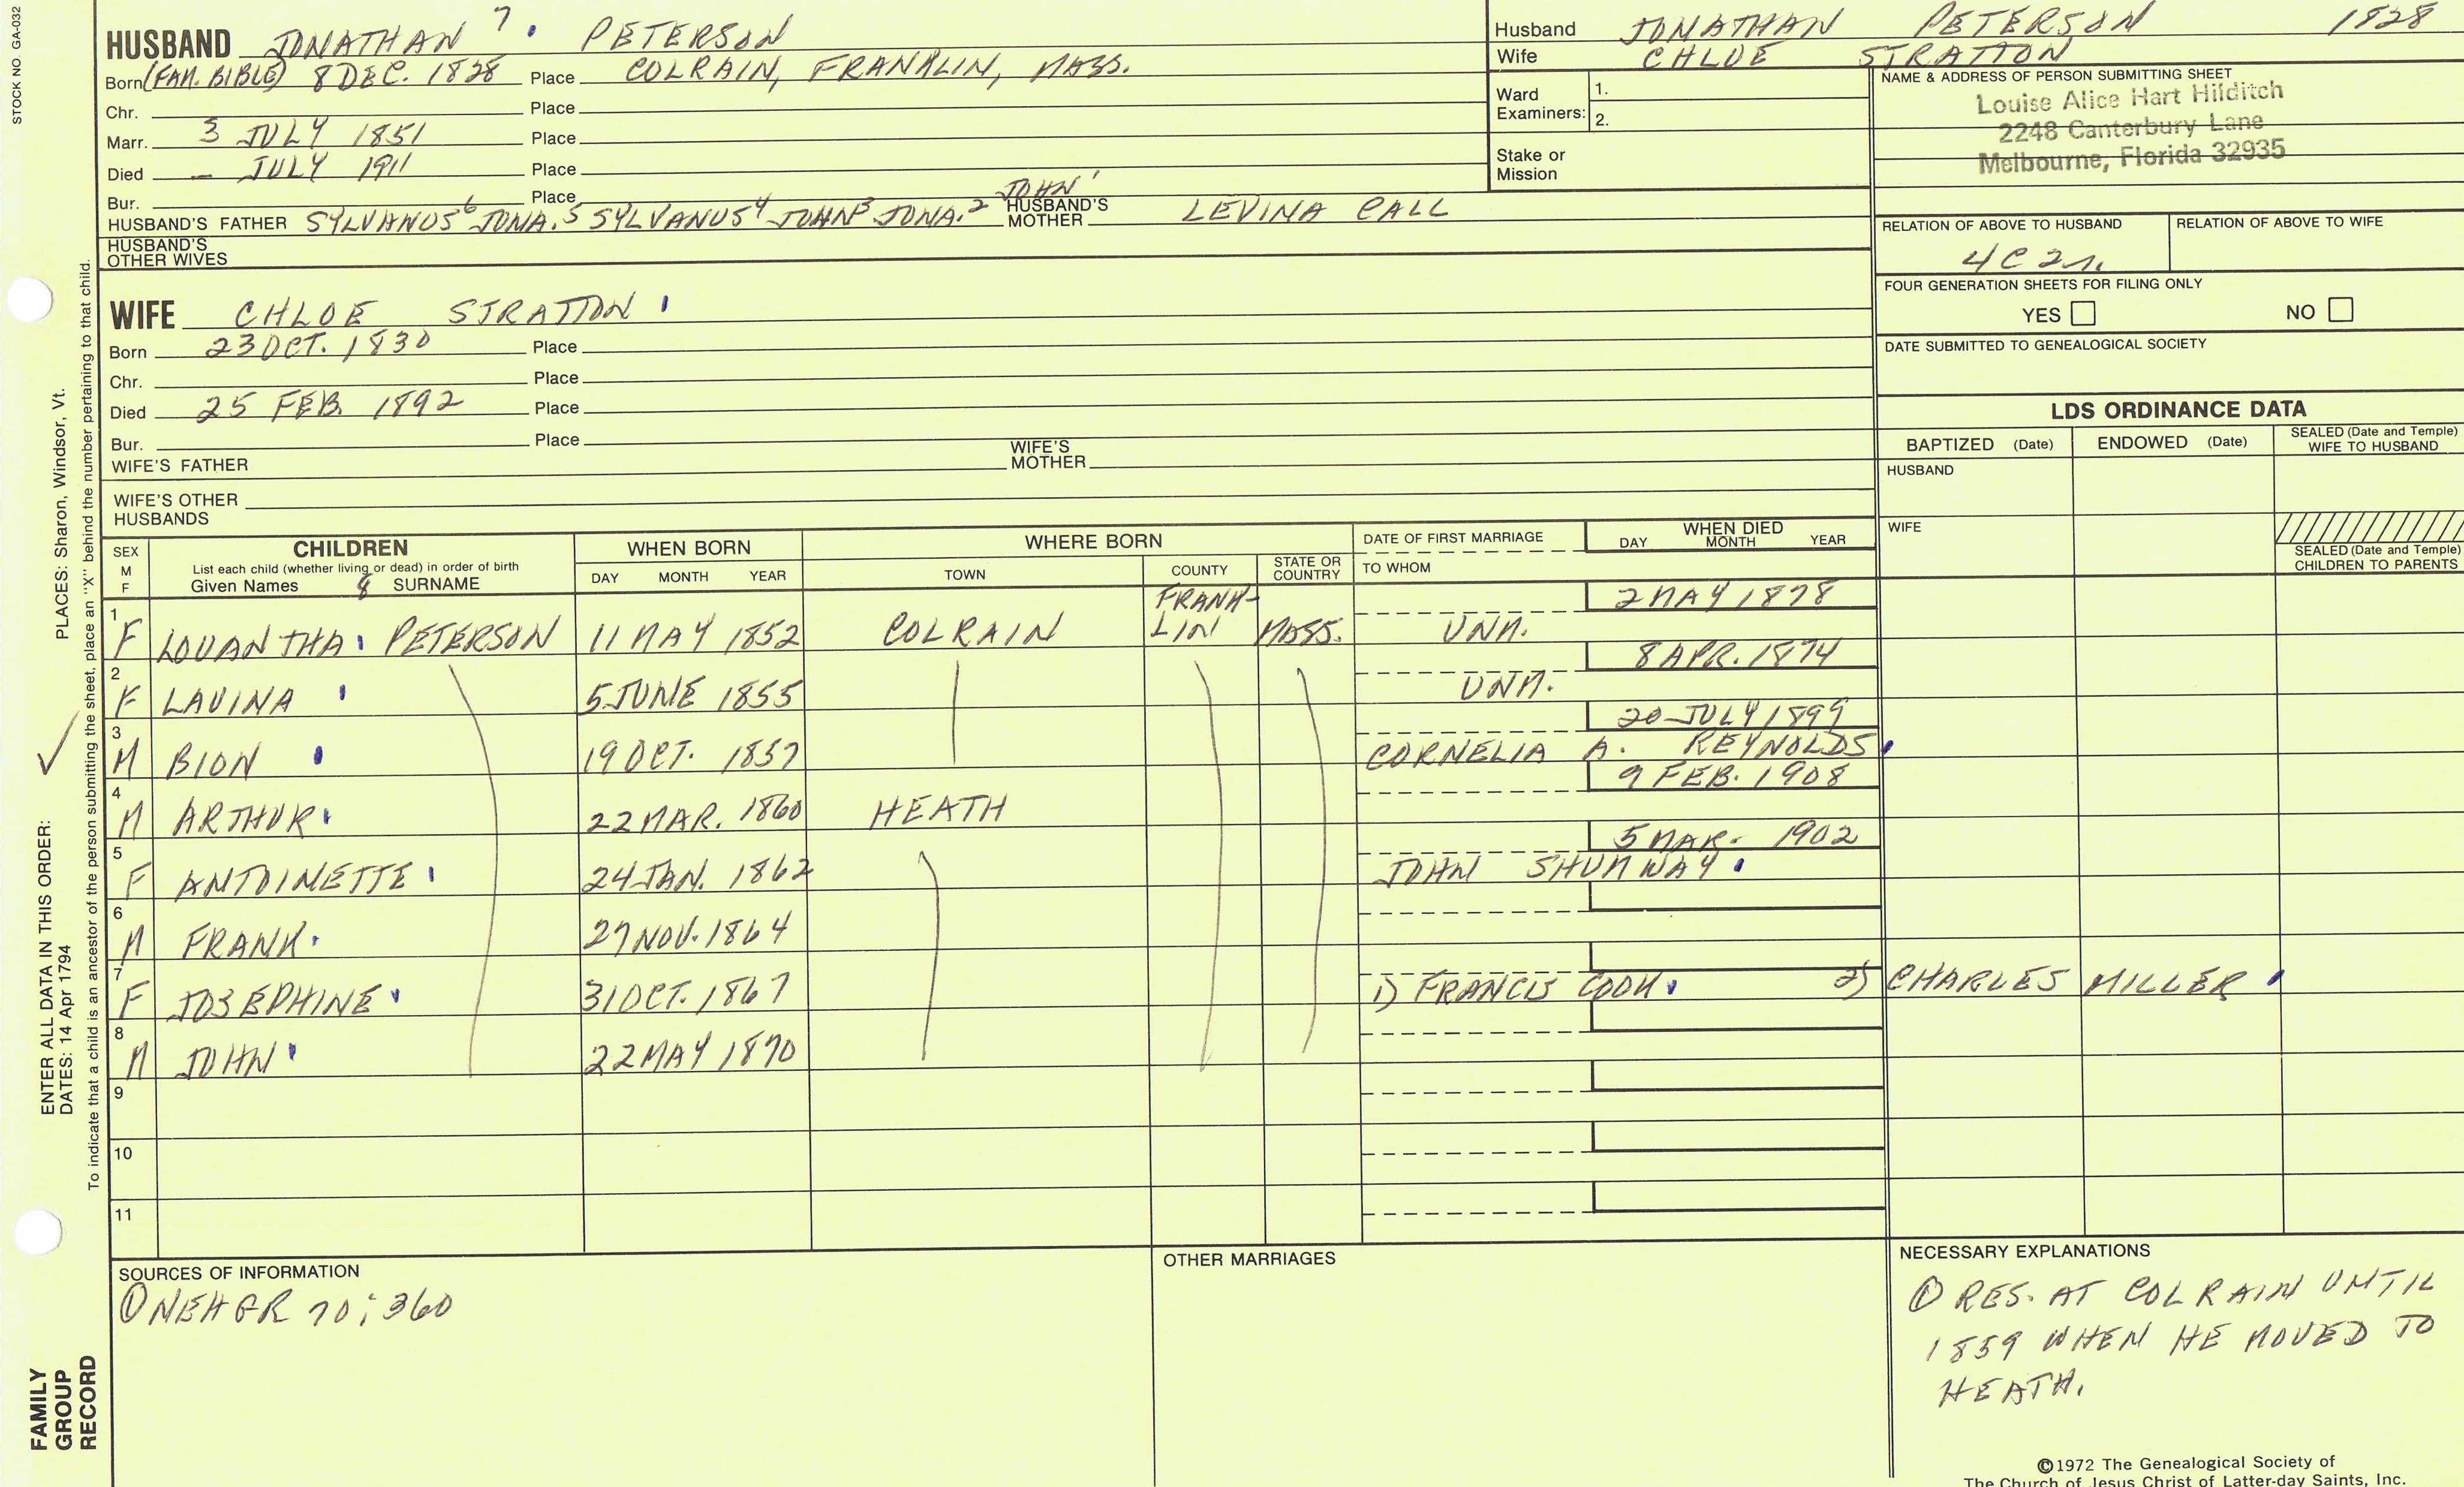 STOCK NO. GA-032
HUSBAND JONATHAN 7 . PETERSON
Born (FAM. BIBLE) 8 DEC. 1828 Place COLRAIN, FRANKLIN, MASS.
Chr. Place
Marr. 3 JULY 1851 Place
Died — JULY 1911 Place
Bur. Place
HUSBAND'S FATHER SYLVANUS6 JONA.5 SYLVANUS4 JOHN3 JONA.2 JOHN1 HUSBAND'S MOTHER LEVINA CALL
HUSBAND'S OTHER WIVES
WIFE CHLOE STRATTON
Born 23 OCT. 1830 Place
Chr. Place
Died 25 FEB. 1892 Place
Bur. Place
WIFE'S FATHER WIFE'S MOTHER
WIFE'S OTHER HUSBANDS
Husband JONATHAN PETERSON 1828
Wife CHLOE STRATTON
Ward Examiners: 1.
2.
Stake or Mission
NAME & ADDRESS OF PERSON SUBMITTING SHEET
Louise Alice Hart Hilditch
2248 Canterbury Lane
Melbourne, Florida 32935
RELATION OF ABOVE TO HUSBAND RELATION OF ABOVE TO WIFE
4C2r.
FOUR GENERATION SHEETS FOR FILING ONLY
YES NO
DATE SUBMITTED TO GENEALOGICAL SOCIETY
LDS ORDINANCE DATA
BAPTIZED (Date) ENDOWED (Date) SEALED (Date and Temple) WIFE TO HUSBAND
HUSBAND
WIFE
SEALED (Date and Temple) CHILDREN TO PARENTS
SEX M F CHILDREN WHEN BORN WHERE BORN DATE OF FIRST MARRIAGE WHEN DIED
List each child (whether living or dead) in order of birth
Given Names 8 SURNAME DAY MONTH YEAR TOWN COUNTY STATE OR COUNTRY TO WHOM DAY MONTH YEAR
1 F LOUANTHA PETERSON 11 MAY 1852 COLRAIN FRANK-LIN MASS. UNM. 2 MAY 1878
2 F LAVINA 5 JUNE 1855 UNM. 8 APR. 1874
3 M BION 19 OCT. 1857 CORNELIA A. REYNOLDS 20 JULY 1899
4 M ARTHUR 22 MAR. 1860 HEATH 9 FEB. 1908
5 F ANTOINETTE 24 JAN. 1862 JOHN SHUMWAY 5 MAR. 1902
6 M FRANK 27 NOV. 1864
7 F JOSEPHINE 31 OCT. 1867 1) FRANCIS COOK 2) CHARLES MILLER
8 M JOHN 22 MAY 1870
9
10
11
SOURCES OF INFORMATION
① NEHGR 70; 360
OTHER MARRIAGES
NECESSARY EXPLANATIONS
① RES. AT COLRAIN UNTIL
1859 WHEN HE MOVED TO
HEATH.
©1972 The Genealogical Society of
The Church of Jesus Christ of Latter-day Saints, Inc.
FAMILY GROUP RECORD
ENTER ALL DATA IN THIS ORDER: PLACES: Sharon, Windsor, Vt.
DATES: 14 Apr 1794
To indicate that a child is an ancestor of the person submitting the sheet, place an "X" behind the number pertaining to that child.